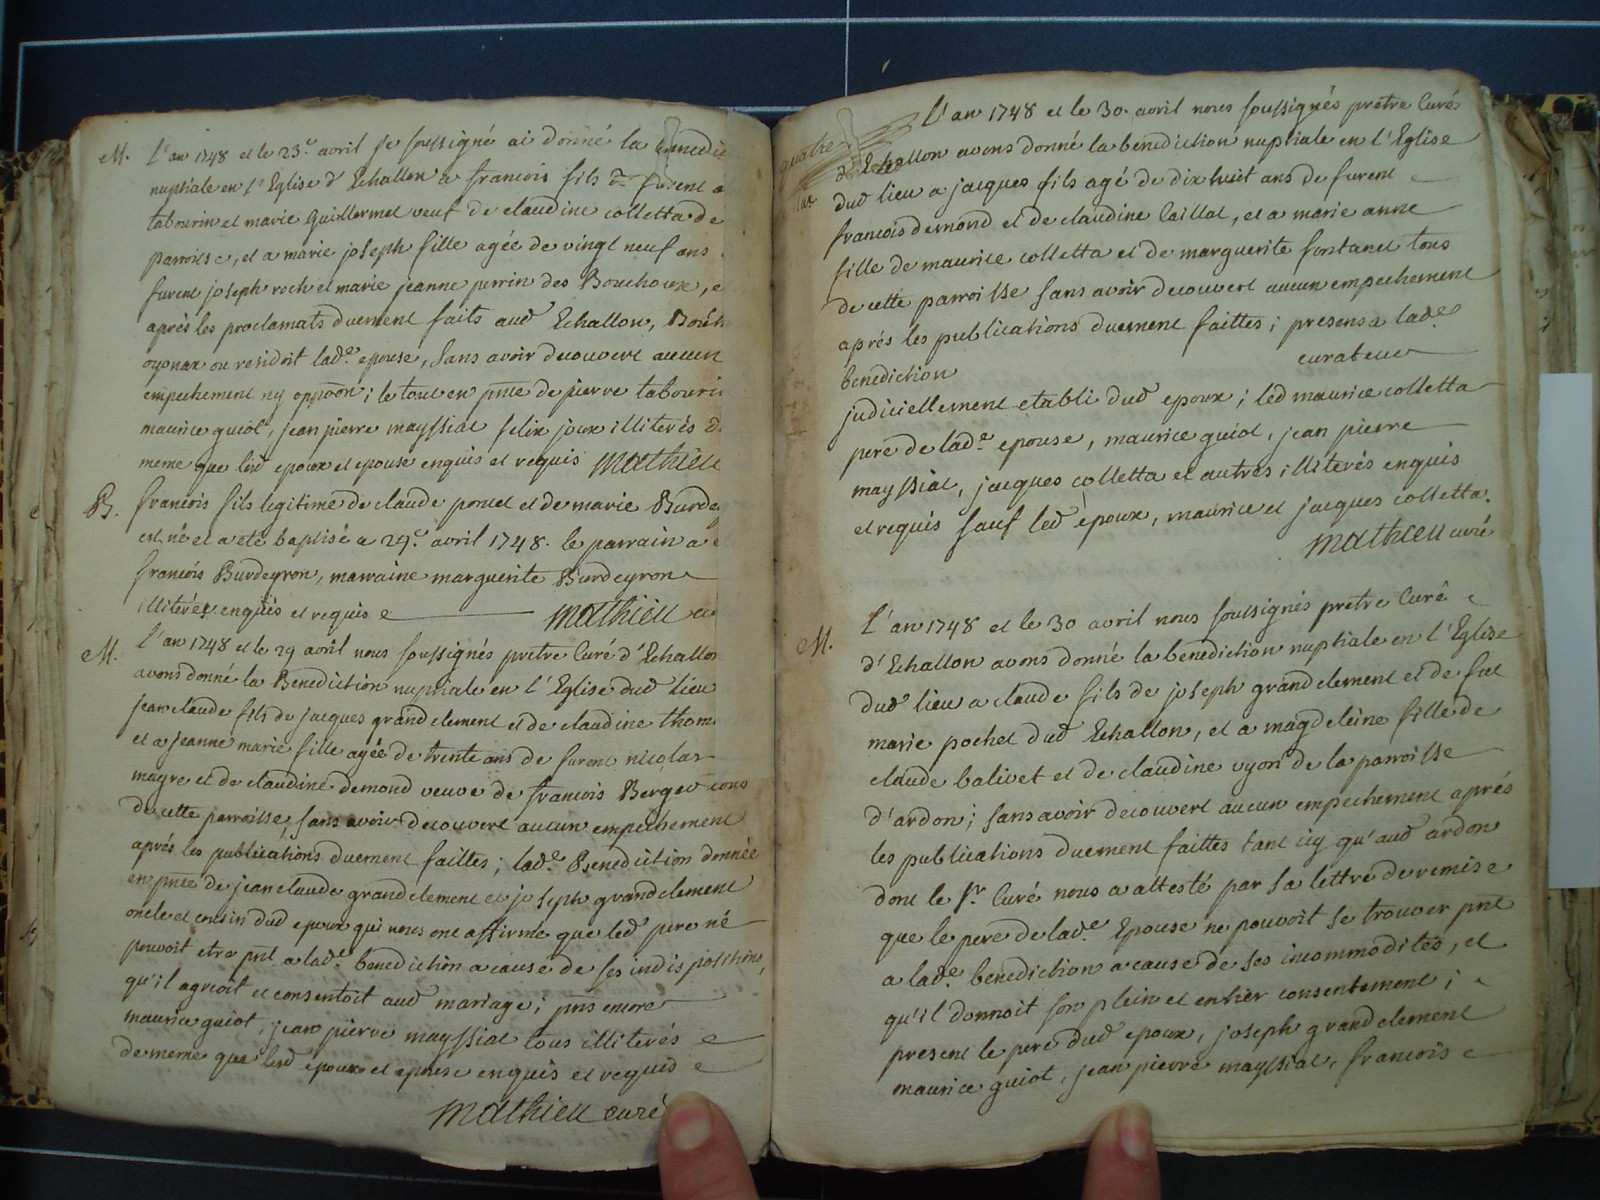 M. L'an 1748 et le 23e avril je soussigné ai donné la benedic
nuptiale en l'Eglise d'Echallon a francois fils de furent
tabourin et marie guillermet veuf de claudine colletta de
parroisse, et a marie joseph fille agée de vingt neuf ans
furent joseph roch et marie jeanne perrin des Bouchoux, e
aprés les proclamats duement faits aud Echallon,
oyonax ou residoit lade epouse, sans avoir decouvert aucun
empechement ny oppoon; le tout en pnce de pierre tabouri
maurice guiot, jean pierre mayssiat felix joux illiterés d
meme que lesd epoux et epouse enquis et requis Mathieu
B. francois fils legitime de claude poncet et de marie Burdey
est né et a eté baptisé a 29e avril 1748. le parrain a e
francois Burdeyron, marraine marguerite Burdeyron
illiterés enquis et requis Mathieu cu
M. L'an 1748 et le 29 avril nous soussignés pretre Curé d'Echallon
avons donné la Benediction nuptiale en l'Eglise dud lieu
jean claude fils de jacques grandclement et de claudine thom
et a jeanne marie fille agée de trente ans de furent nicolas
magre et de claudine demond veuve de francois Berger tous
de cette parroisse, sans avoir decouvert aucun empechement
aprés les publications duement faittes; lade Benediction donnée
en pnce de jean claude grandclement et joseph grandclement
oncle et cousin dud epoux qui nous ont affirmé que led pere né
pouvoit etre pnt a lade benediction a cause de ses indispositions,
qu'il agreoit et consentoit aud mariage; pns encore
maurice guiot, jean pierre mayssiat tous illiterés
de meme que lesd epoux et epouse enquis et requis
Mathieu curé
quatre
L'an 1748 et le 30. avril nous soussignés pretre Curé
d'Echallon avons donné la benediction nuptiale en l'Eglise
dud lieu a jacques fils agé de dix huit ans de furent
francois demond et de claudine Caillat, et a marie anne
fille de maurice colletta et de marguerite fontanet tous
de cette parroisse sans avoir decouvert aucun empechement
aprés les publications duement faittes; presens a lade
benediction curateur
judiciellement etabli dud epoux; led maurice colletta
pere de lade epouse, maurice guiot, jean pierre
mayssiat, jacques colletta et autres illiterés enquis
et requis sauf led epoux, maurice et jacques colletta.
Mathieu curé
M. L'an 1748 et le 30 avril nous soussignés pretre Curé
d'Echallon avons donné la benediction nuptiale en l'Eglise
dud lieu a claude fils de joseph grandclement et de fut
marie pochet dud Echallon, et a magdeleine fille de
claude balivet et de claudine uyon de la parroisse
d'ardon; sans avoir decouvert aucun empechement aprés
les publications duement faittes tant icy qu'aud ardon
dont le sr. Curé nous a attesté par sa lettre de remise
que le pere de lade Epouse ne pouvoit se trouver pnt
a lade benediction a cause de ses incommodités, et
qu'il donnoit son plein et entier consentement;
present le pere dud epoux, joseph grandclement
maurice guiot, jean pierre mayssiat, francois